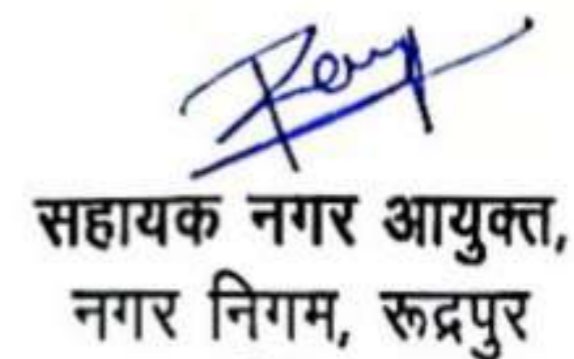 सहायक नगर आयुक्त,
नगर निगम, रूद्रपुर